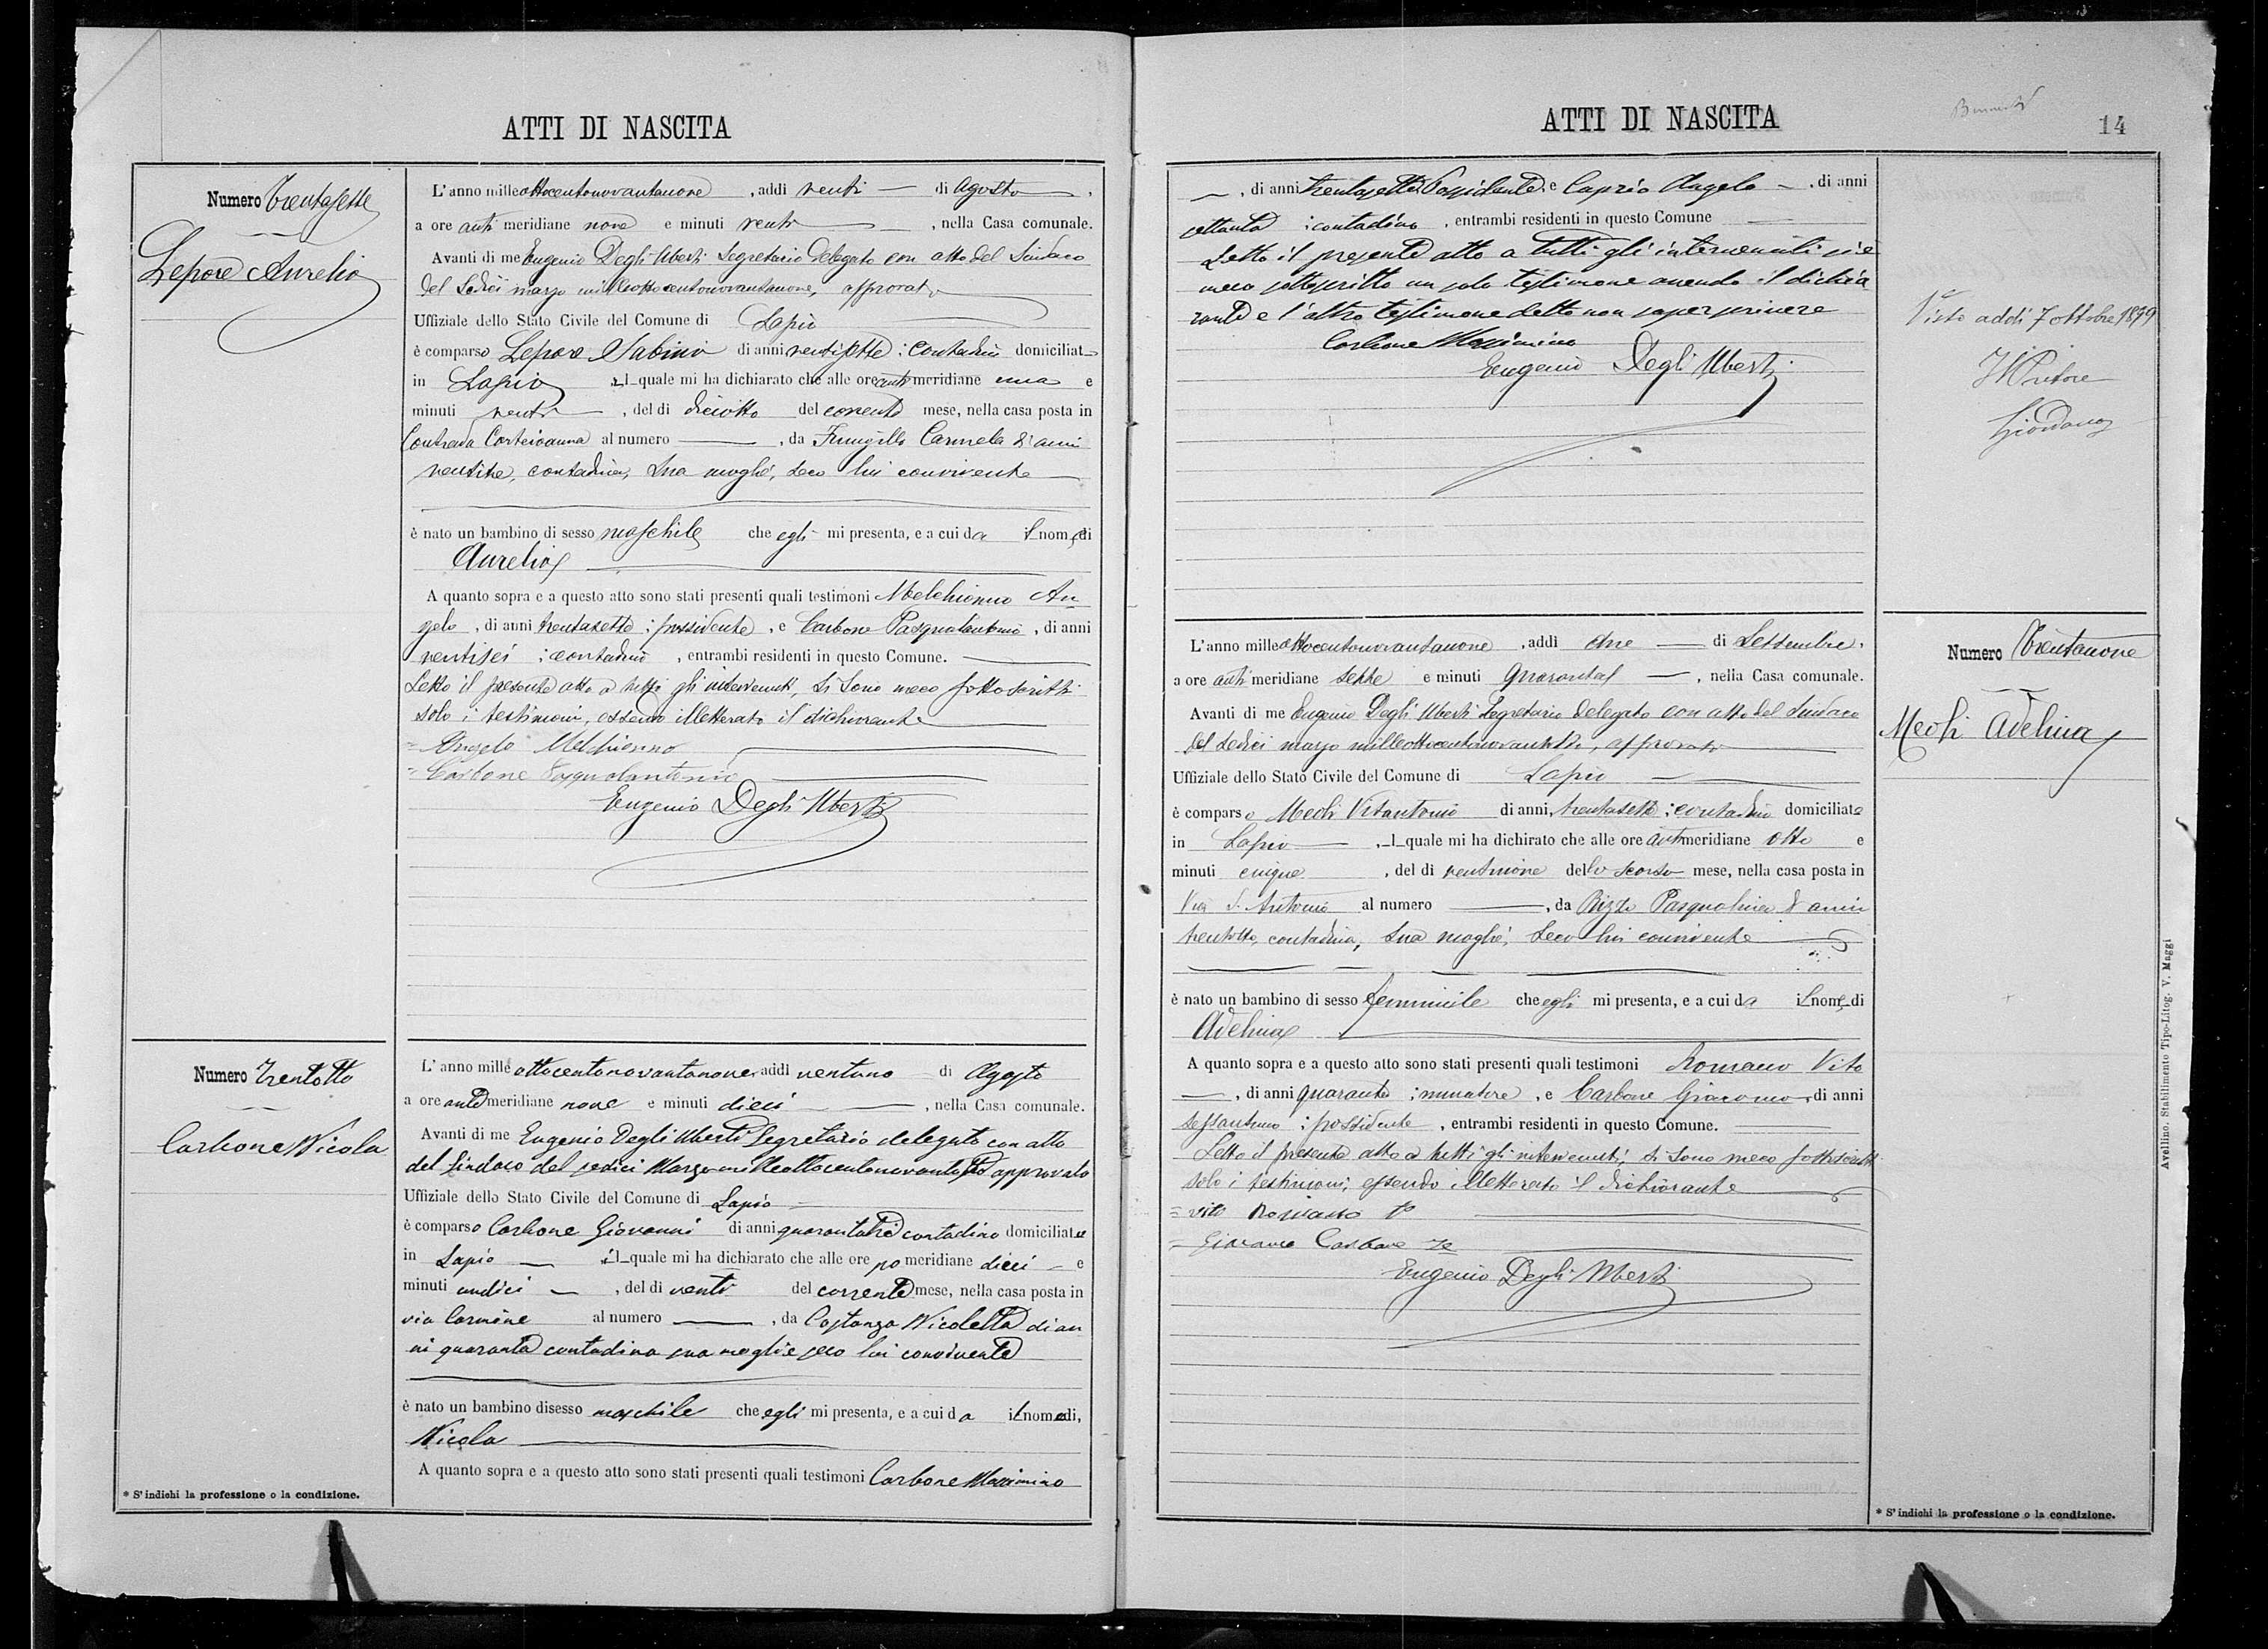 ATTI DI NASCITA
Numero Trentasette
Lepore Aurelio
L'anno milleottocentonovantanove, addì venti di Agosto,
a ore anti meridiane nove e minuti venti, nella Casa comunale.
Avanti di me Eugenio Degli Uberti Segretario delegato con atto del Sindaco
del Sedici marzo milleottocentonovantanove, approvato
Uffiziale dello Stato Civile del Comune di Lapio
è comparso Lepore Sabino di anni ventisette; contadino domiciliato
in Lapio il quale mi ha dichiarato che alle ore anti meridiane una e
minuti venti, del dì diciotto del corrente mese, nella casa posta in
Contrada al numero , da Carmela di anni
ventitre, contadina, sua moglie, seco lui convivente
è nato un bambino di sesso maschile che egli mi presenta, e a cui da il nome di
Aurelio
A quanto sopra e a questo atto sono stati presenti quali testimoni Melchionno An
gelo, di anni trentasette; possidente, e Carbone Pasqualantonio, di anni
ventisei; contadino, entrambi residenti in questo Comune.
Letto il presente atto a tutti gli intervenuti, si sono meco sottoscritti
solo i testimoni, essendo illetterato il dichiarante
= Angelo Melchionno
= Carbone Pasqualantonio
Eugenio Degli Uberti
Numero Trentotto
Carbone Nicola
L'anno mille ottocentonovantanove, addì ventuno di Agosto
a ore ante meridiane nove e minuti dieci, nella Casa comunale.
Avanti di me Eugenio Degli Uberti Segretario delegato con atto
del Sindaco del sedici Marzo approvato
Uffiziale dello Stato Civile del Comune di Lapio
è comparso Carbone Giovanni di anni quarantatre contadino domiciliato
in Lapio il quale mi ha dichiarato che alle ore po meridiane dieci e
minuti undici, del dì venti del corrente mese, nella casa posta in
via Carmine al numero , da Costanza Nicoletta di an
ni quaranta contadina sua moglie seco lui convivente
è nato un bambino di sesso maschile che egli mi presenta, e a cui da il nome di,
Nicola
A quanto sopra e a questo atto sono stati presenti quali testimoni Carbone Massimino
* S'indichi la professione o la condizione.
ATTI DI NASCITA
14
, di anni trentasette Possidente, e Caprio Angelo, di anni
settanta; contadino, entrambi residenti in questo Comune
Letto il presente atto a tutti gli intervenuti si è
meco sottoscritto un solo testimone avendo il dichia
rante e l'altro testimone detto non saper scrivere
Carbone Massimino
Eugenio Degli Uberti
Visto addì 7 ottobre 1899
Il Pretore
Giordano
L'anno milleottocentonovantanove, addì due di Settembre,
a ore anti meridiane sette e minuti quaranta, nella Casa comunale.
Avanti di me Eugenio Degli Uberti Segretario delegato con atto del Sindaco
del Sedici marzo approvato
Uffiziale dello Stato Civile del Comune di Lapio
è comparso Meoli Vitantonio di anni trentasette; contadino domiciliato
in Lapio, il quale mi ha dichirato che alle ore anti meridiane otto e
minuti cinque, del dì ventinove dello scorso mese, nella casa posta in
Via S. Antonio al numero , da Rizzo Pasqualina di anni
trentotto, contadina, sua moglie, seco lui convivente
è nato un bambino di sesso femminile che egli mi presenta, e a cui da il nome di
Adelina
A quanto sopra e a questo atto sono stati presenti quali testimoni Romano Vito
, di anni quaranta; muratore, e Carbone Giacomo, di anni
sessantuno; possidente, entrambi residenti in questo Comune.
Letto il presente atto a tutti gli intervenuti, si sono meco sottoscritti
solo i testimoni, essendo illetterato il dichiarante
= vito Romano
= Giacomo Carbone
Eugenio Degli Uberti
Numero Trentanove
Meoli Adelina
Avellino. Stabilimento Tipo-Litog. V. Maggi
* S'indichi la professione o la condizione.